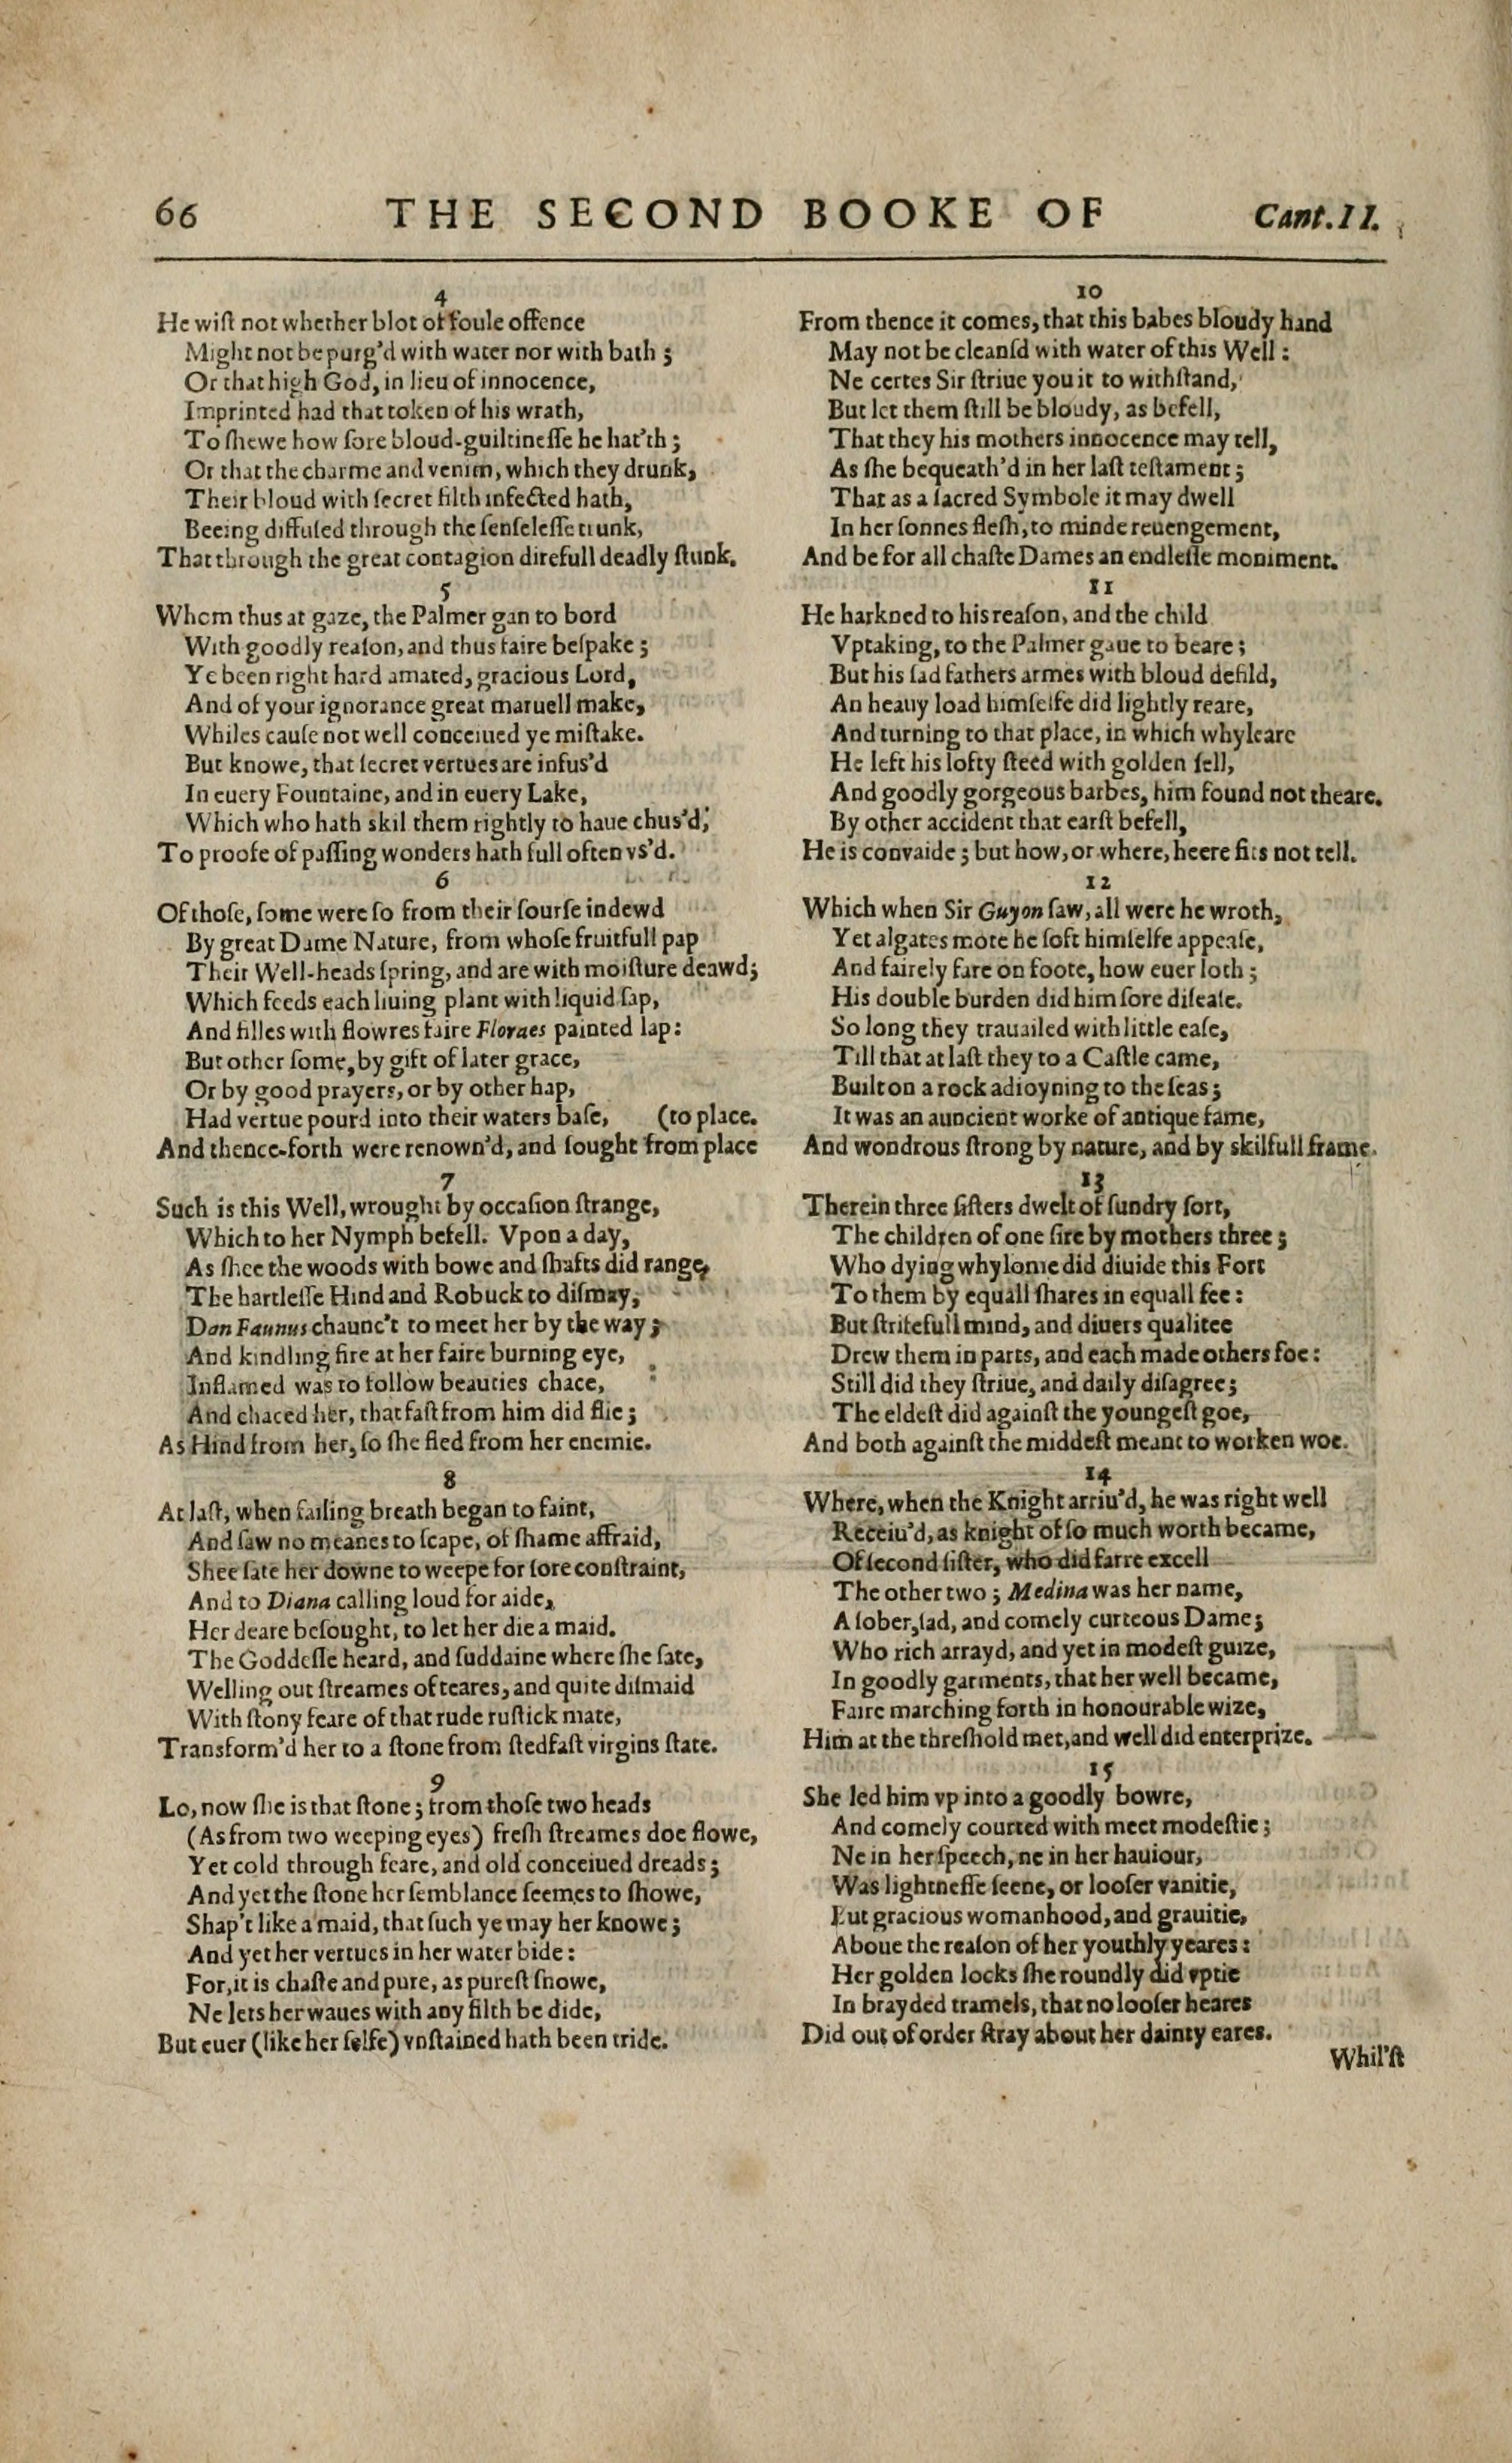 66 THE SECOND BOOKE OF Cant. II.
4
He wiſt not whether blot of foule offence
Might not be purg'd with water nor with bath ;
Or that high God, in lieu of innocence,
Imprinted had that token of his wrath,
To ſhewe how ſore bloud-guiltineſſe he hat'th ;
Or that the charme and venim, which they drunk,
Their bloud with ſecret filth infected hath,
Beeing diffuſed through the ſenſeleſſe trunk,
That through the great contagion direfull deadly ſtunk.
5
Whom thus at gaze, the Palmer gan to bord
With goodly reaſon, and thus faire beſpake ;
Ye been right hard amated, gracious Lord,
And of your ignorance great maruell make,
Whiles cauſe not well conceiued ye miſtake.
But knowe, that ſecret vertues are infus'd
In euery Fountaine, and in euery Lake,
Which who hath skil them rightly to haue chus'd,
To proofe of paſſing wonders hath full often vs'd.
6
Of thoſe, ſome were ſo from their ſourſe indewd
By great Dame Nature, from whoſe fruitfull pap
Their Well-heads ſpring, and are with moiſture deawd;
Which feeds each liuing plant with liquid ſap,
And filles with flowres faire Floraes painted lap:
But other ſome, by gift of later grace,
Or by good prayers, or by other hap,
Had vertue pourd into their waters baſe, (to place.
And thence-forth were renown'd, and ſought from place
7
Such is this Well, wrought by occaſion ſtrange,
Which to her Nymph befell. Vpon a day,
As ſhee the woods with bowe and ſhafts did range,
The hartleſſe Hind and Robuck to diſmay,
Dan Faunus chaunc't to meet her by the way ;
And kindling fire at her faire burning eye,
Inflamed was to follow beauties chace,
And chaced her, that faſt from him did flie ;
As Hind from her, ſo ſhe fled from her enemie.
8
At laſt, when failing breath began to faint,
And ſaw no meanes to ſcape, of ſhame affraid,
Shee ſate her downe to weepe for ſore conſtraint,
And to Diana calling loud for aide,
Her deare beſought, to let her die a maid.
The Goddeſſe heard, and ſuddaine where ſhe ſate,
Welling out ſtreames of teares, and quite diſmaid
With ſtony feare of that rude ruſtick mate,
Transform'd her to a ſtone from ſtedfaſt virgins ſtate.
9
Lo, now ſhe is that ſtone ; from thoſe two heads
(As from two weeping eyes) freſh ſtreames doe flowe,
Yet cold through feare, and old conceiued dreads ;
And yet the ſtone her ſemblance ſeemes to ſhowe,
Shap't like a maid, that ſuch ye may her knowe ;
And yet her vertues in her water bide :
For, it is chaſte and pure, as pureſt ſnowe,
Ne lets her waues with any filth be dide,
But euer (like her ſelfe) vnſtained hath been tride.
10
From thence it comes, that this babes bloudy hand
May not be cleanſd with water of this Well :
Ne certes Sir ſtriue you it to withſtand,
But let them ſtill be bloudy, as befell,
That they his mothers innocence may tell,
As ſhe bequeath'd in her laſt teſtament ;
That as a ſacred Symbole it may dwell
In her ſonnes fleſh, to minde reuengement,
And be for all chaſte Dames an endleſſe moniment.
11
He harkned to his reaſon, and the child
Vptaking, to the Palmer gaue to beare ;
But his ſad fathers armes with bloud defild,
An heauy load himſelfe did lightly reare,
And turning to that place, in which whyleare
He left his lofty ſteed with golden ſell,
And goodly gorgeous barbes, him found not theare.
By other accident that earſt befell,
He is convaide ; but how, or where, heere fits not tell.
12
Which when Sir Guyon ſaw, all were he wroth,
Yet algates mote he ſoft himſelfe appeaſe,
And fairely fare on foote, how euer loth ;
His double burden did him ſore diſeaſe.
So long they trauailed with little eaſe,
Till that at laſt they to a Caſtle came,
Built on a rock adioyning to the ſeas ;
It was an auncient worke of antique fame,
And wondrous ſtrong by nature, and by skilfull frame.
13
Therein three ſiſters dwelt of ſundry ſort,
The children of one ſire by mothers three ;
Who dying whylome did diuide this Fort
To them by equall ſhares in equall fee :
But ſtrifefull mind, and diuers qualitee
Drew them in parts, and each made others foe :
Still did they ſtriue, and daily diſagree ;
The eldeſt did againſt the youngeſt goe,
And both againſt the middeſt meant to worken woe.
14
Where, when the Knight arriu'd, he was right well
Receiu'd, as knight of ſo much worth became,
Of ſecond ſiſter, who did farre excell
The other two ; Medina was her name,
A ſober, ſad, and comely curteous Dame ;
Who rich arrayd, and yet in modeſt guize,
In goodly garments, that her well became,
Faire marching forth in honourable wize,
Him at the threſhold met, and well did enterprize.
15
She led him vp into a goodly bowre,
And comely courted with meet modeſtie ;
Ne in her ſpeech, ne in her hauiour,
Was lightneſſe ſeene, or looſer vanitie,
But gracious womanhood, and grauitie,
Aboue the reaſon of her youthly yeares :
Her golden locks ſhe roundly did vptie
In brayded tramels, that no looſer heares
Did out of order ſtray about her dainty eares.
Whil'ſt